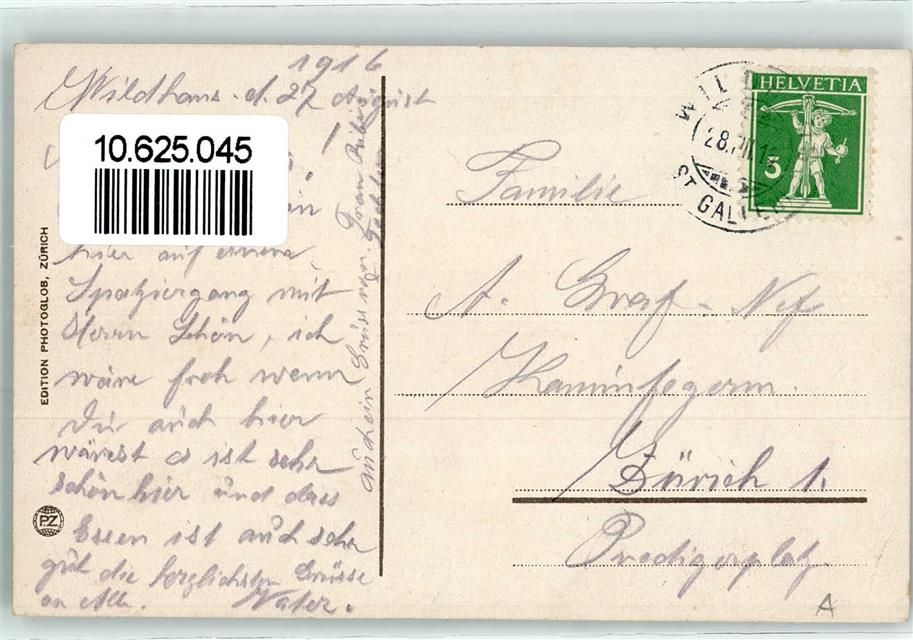 1916
Wildhaus. d. 27 August
10.625.045
hier auf einem
Spatziergang mit
Herrn Schön, ich
wäre froh wenn
Du auch hier
wärest es ist sehr
schön hier und das
Essen ist auch sehr
gut die herzlichsten Grüsse
an Alle. Vater.
auch ein Gruss von Frau
EDITION PHOTOGLOB, ZÜRICH
PZ
HELVETIA
5
ST GALLEN
Familie
A. Graf-Nef
Kaminfegerm.
Zürich 1.
Predigerplatz.
A